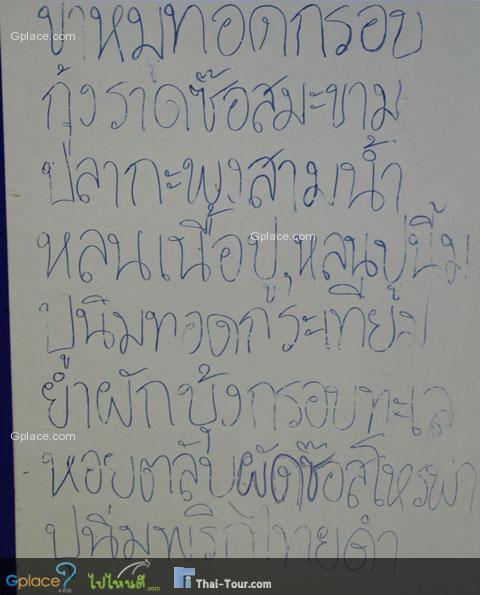 ขาหมูทอดกรอบ
กุ้งราดซ๊อสมะขาม
ปลากะพงสามน้ำ
หลนเนื้อปู,หลนปูนิ้ม
ปูนิมทอดกระเทียม
ยำผักบุ้งกรอบทะเล
หอยตลับผัดซ๊อสโหรพา
ปูนิ่มพริกไทยดำ
Gplace.com
Gplace.com
Gplace.com
Gplace?.com ไปไหนดี.com Thai-Tour.com